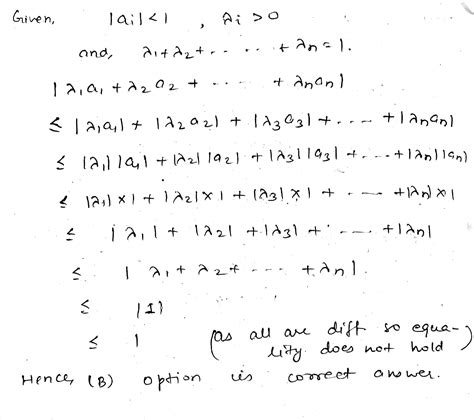 Given, |ai| < 1 , λi > 0
and, λ1+λ2+ - - - - - + λn = 1.
| λ1a1 + λ2a2 + - - - - - + λnan|
≤ |λ1a1| + |λ2a2| + |λ3a3| + - - - + |λnan|
≤ |λ1||a1| + |λ2||a2| + |λ3||a3| + - - - + |λn||an|
≤ |λ1|×1 + |λ2|×1 + |λ3|×1 + - - - + |λn|×1
≤ |λ1| + |λ2| + |λ3| + - - - + |λn|
≤ | λ1 + λ2 + - - - + λn|.
≤ |1|
≤ 1 (as all are diff so equa-
lity does not hold)
Hence, (B) option is correct answer.